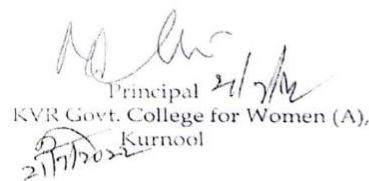 Principal
KVR Govt. College for Women (A),
Kurnool
21/7/2022